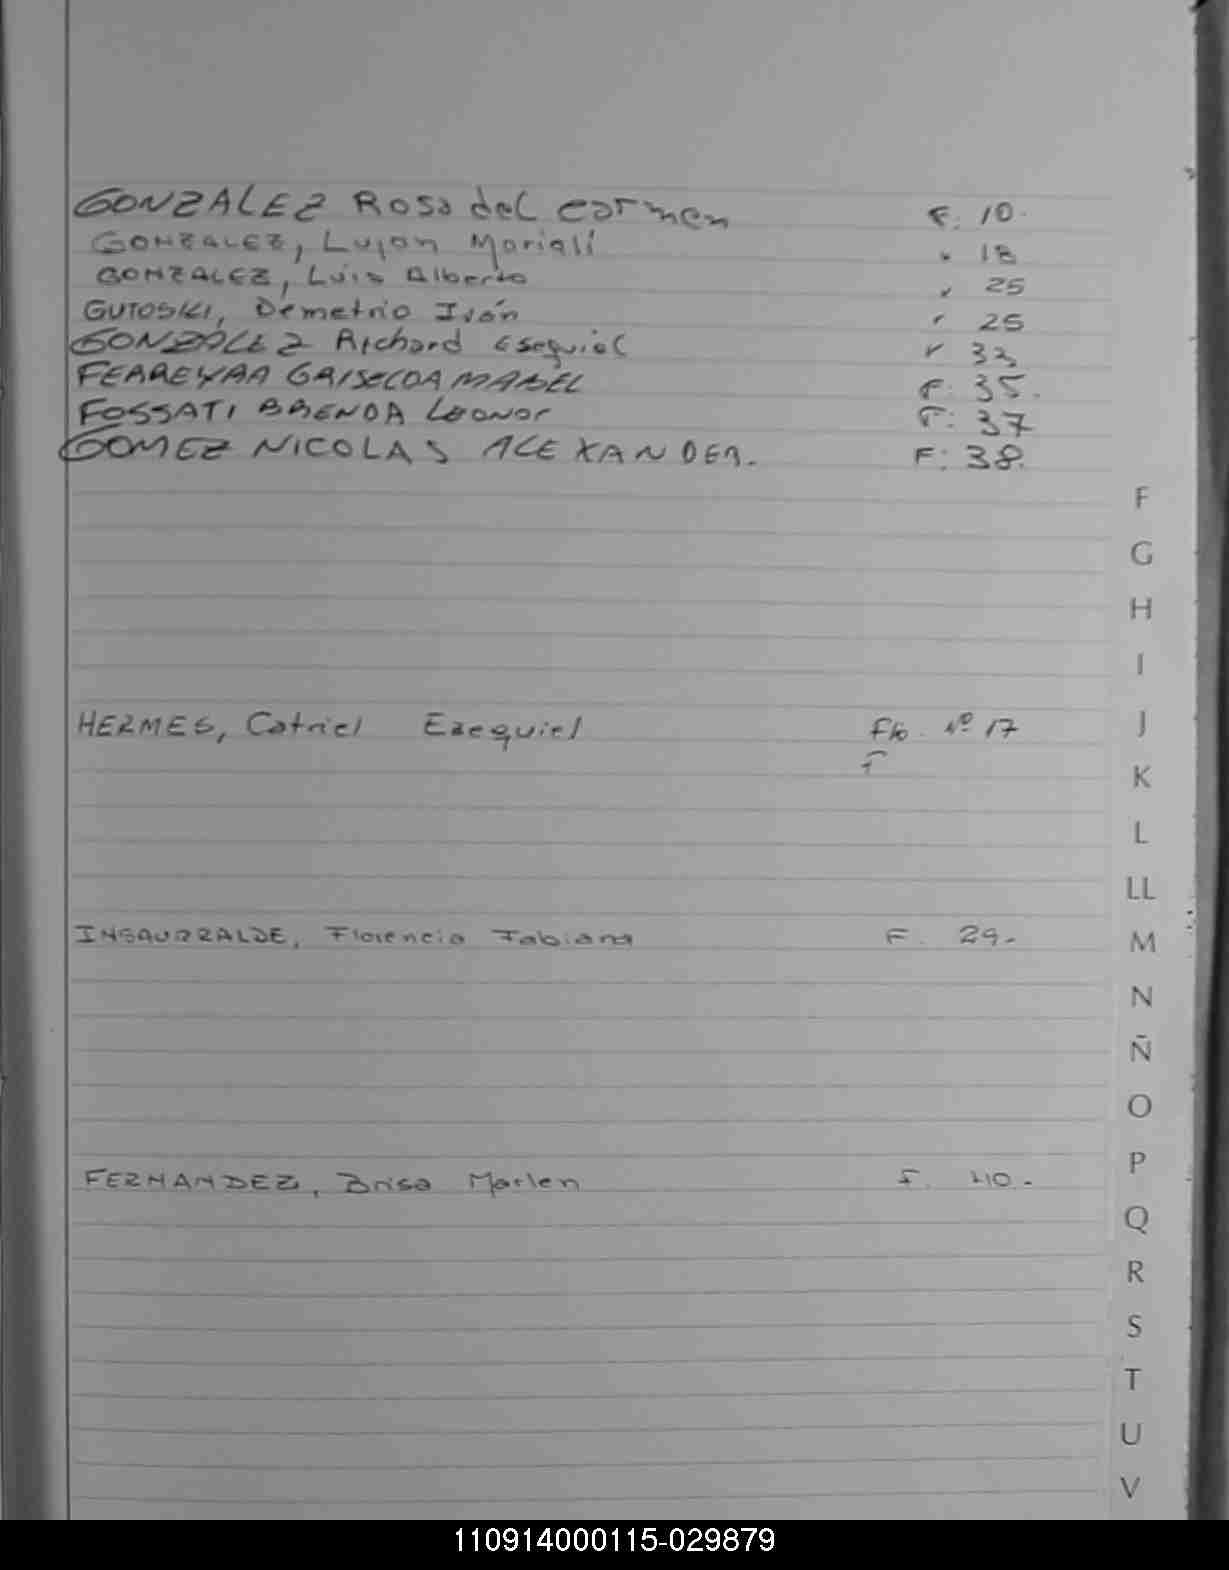 GONZALEZ Rosa del Carmen F. 10.
GONZALEZ, Lujan Mariali " 18
GONZALEZ, Luis Alberto " 25
GUTOSKI, Demetrio Iván " 25
GONZÁLEZ Richard Esequiel " 33
FERREYRA GRISELDA MABEL F: 35.
FOSSATI BRENDA Leonor F: 37
GOMEZ NICOLAS ALEXANDER. F: 38.
F
G
H
I
HERMES, Catriel Ezequiel Flo. Nº 17
J
F
K
L
LL
INSAURRALDE, Florencia Fabiana F. 29.
M
N
Ñ
O
P
FERNANDEZ, Brisa Marlen F. 40.
Q
R
S
T
U
V
110914000115-029879